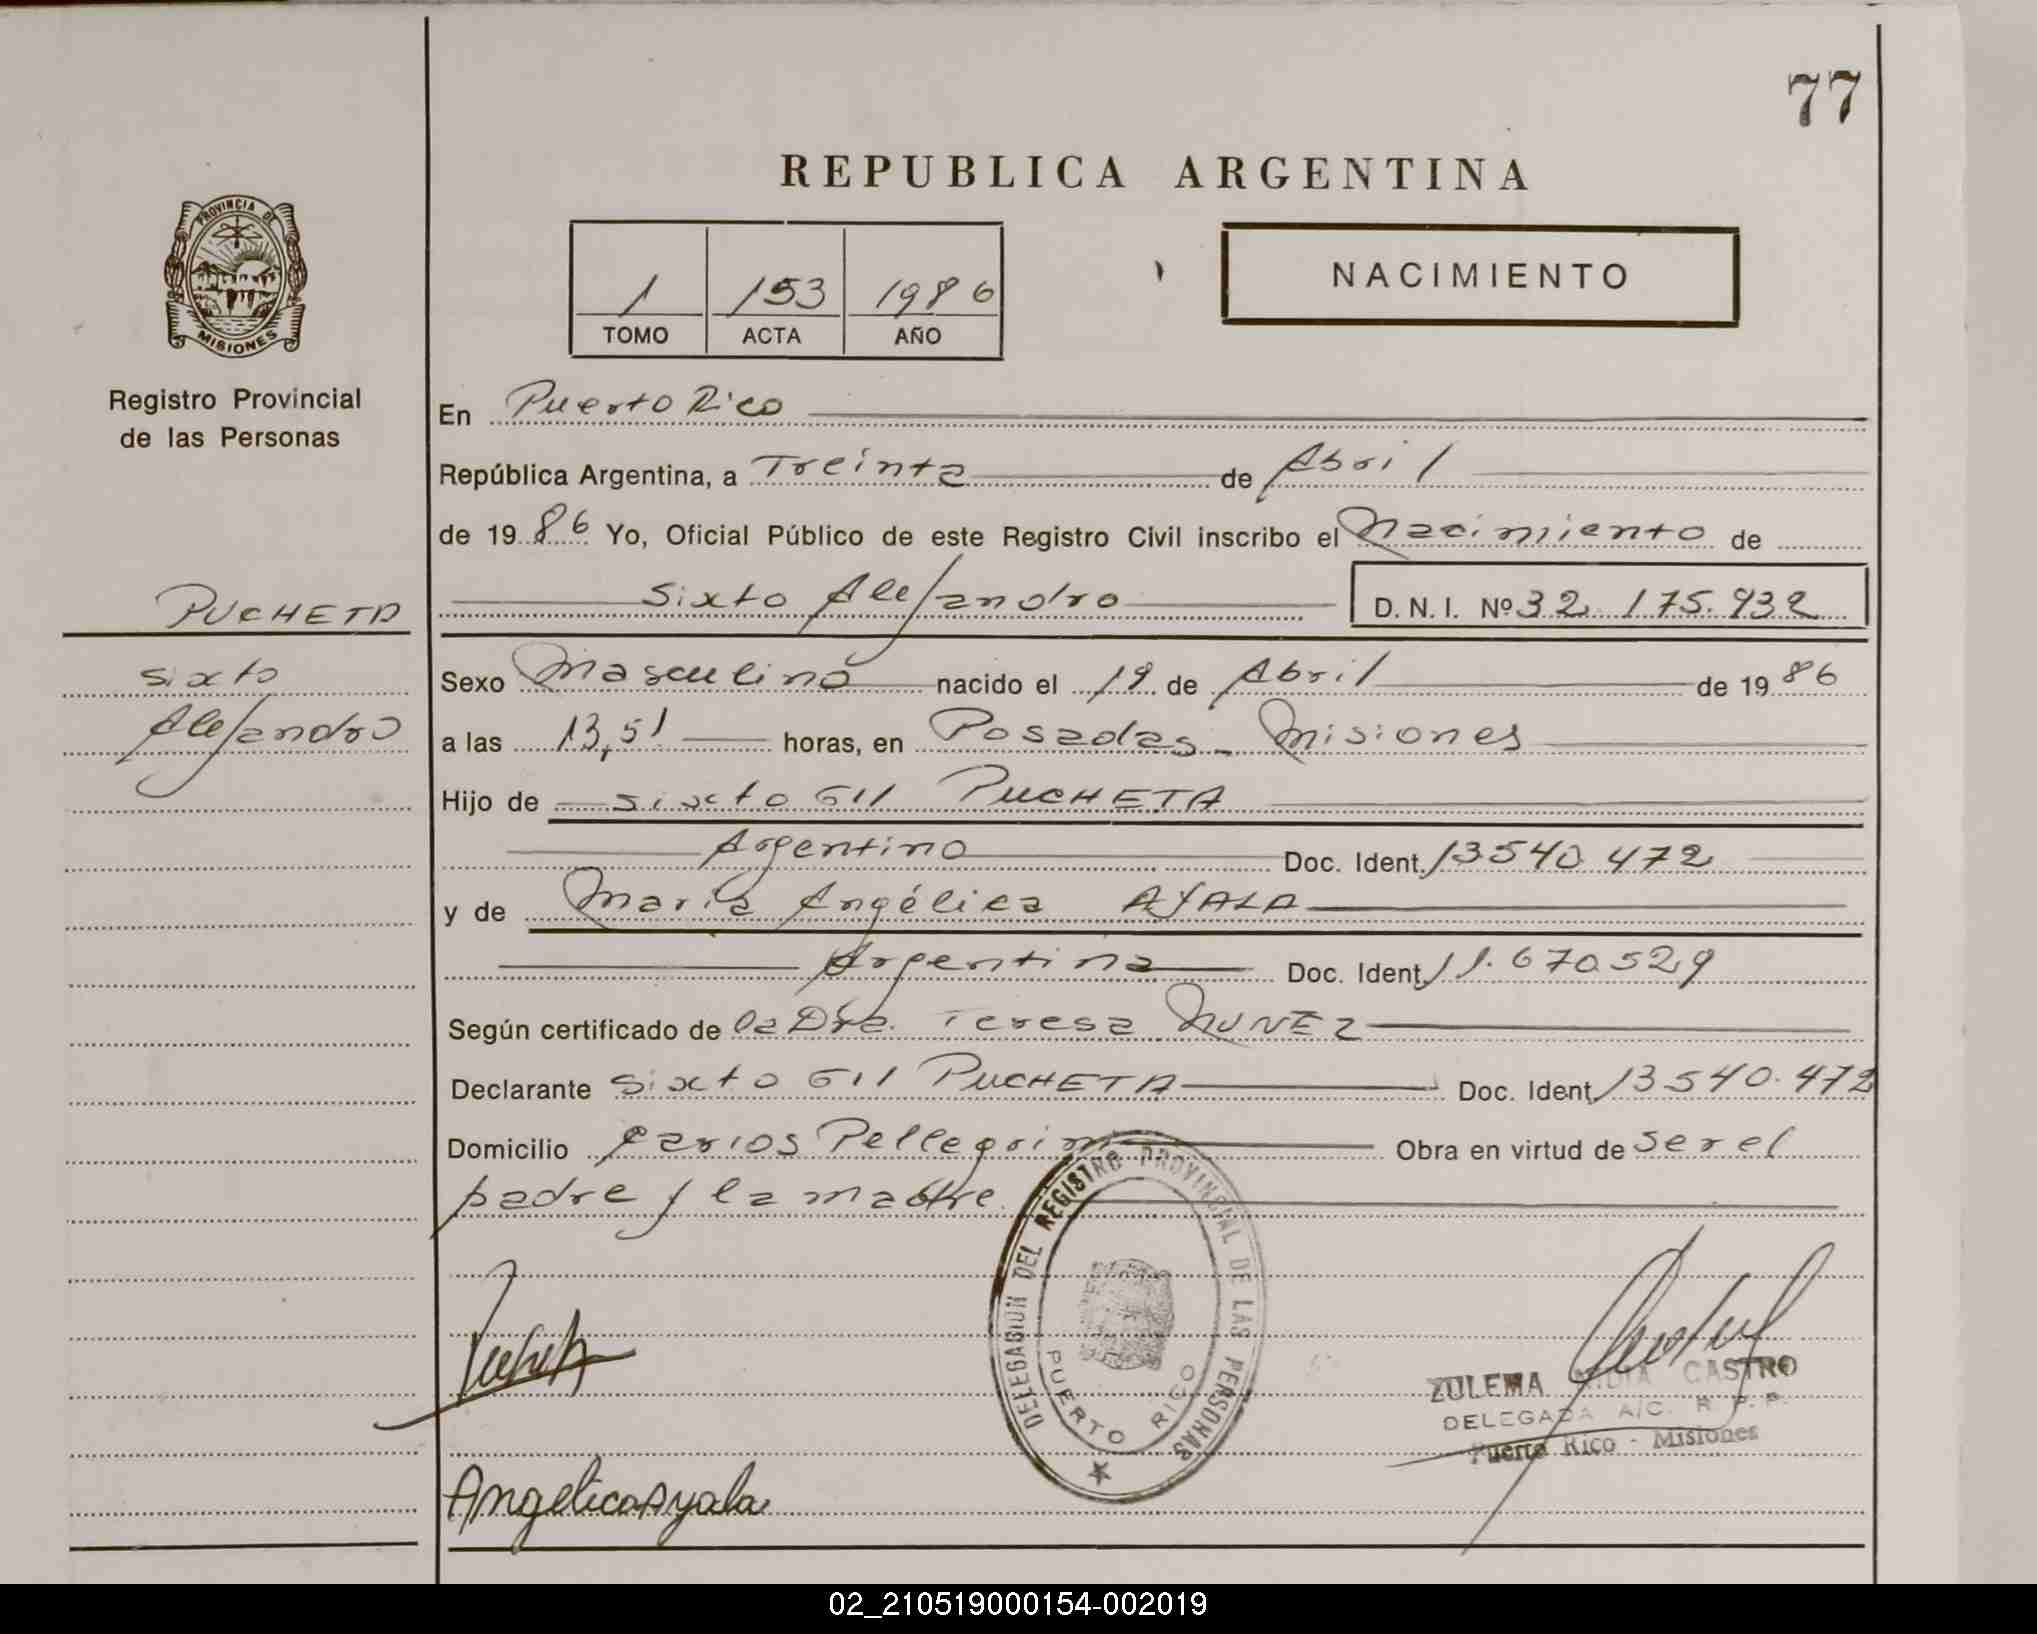 77
REPUBLICA ARGENTINA
PROVINCIA DE
MISIONES
Registro Provincial
de las Personas
1 153 1986
TOMO ACTA AÑO
NACIMIENTO
En Puerto Rico
República Argentina, a Treinta de Abril
de 1986 Yo, Oficial Público de este Registro Civil inscribo el Nacimiento de
Sixto Alejandro D.N.I. Nº 32.175.932
PUCHETA
Sixto
Alejandro
Sexo Masculino nacido el 19 de Abril de 1986
a las 13,51 horas, en Posadas - Misiones
Hijo de Sixto Gil PUCHETA
Argentino Doc. Ident. 13540.472
y de María Angélica AYALA
Argentina Doc. Ident. 11.670.529
Según certificado de la Dra. Teresa NUNEZ
Declarante Sixto Gil PUCHETA Doc. Ident. 13540.472
Domicilio Carlos Pellegrini Obra en virtud de ser el
padre y la madre.
DELEGACION DEL REGISTRO PROVINCIAL DE LAS PERSONAS
PUERTO RICO
ZULEMA NIDIA CASTRO
DELEGADA A/C. R. P. P.
Puerto Rico - Misiones
Angelica Ayala
02_210519000154-002019